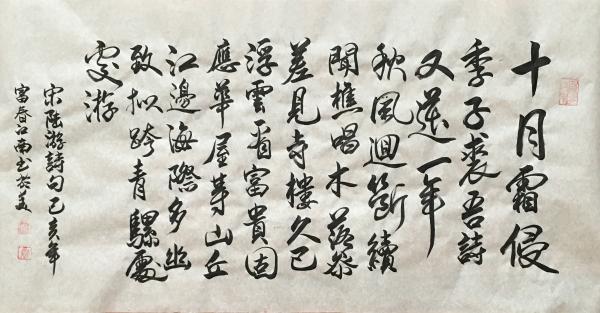 十月霜侵
季子裘吾詩
又送一年
秋風迴斷續
聞樵唱木落參
差見寺樓久已
浮雲看富貴固
應華屋等山丘
江邊海際多幽
致擬跨青騾處
處游
宋陸游詩句己亥年
富春江南書於美